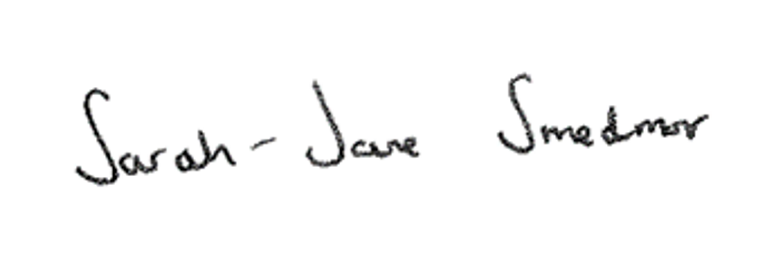 Sarah-Jane Smedmor